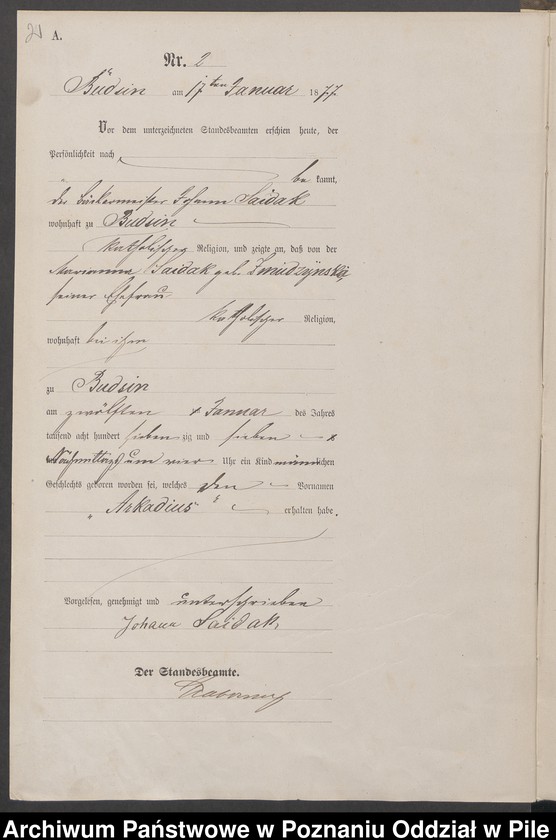 21 A.
Nr. 2
Budsin am 17ten Januar 1877
Vor dem unterzeichneten Standesbeamten erschien heute, der
Persönlichkeit nach
be kannt,
der Bäckermeister Johann Saidak
wohnhaft zu Budsin
katholischer Religion, und zeigte an, daß von der
Marianna Saidak geb. Zmudzynska
seiner Ehefrau
katholischer Religion,
wohnhaft bei ihm
zu Budsin
am zwölften Januar des Jahres
tausend acht hundert siebenzig und sieben
Nachmittags um vier Uhr ein Kind männlichen
Geschlechts geboren worden sei, welches den Vornamen
Arkadius erhalten habe.
Vorgelesen, genehmigt und unterschrieben
Johann Saidak
Der Standesbeamte.
Archiwum Państwowe w Poznaniu Oddział w Pile